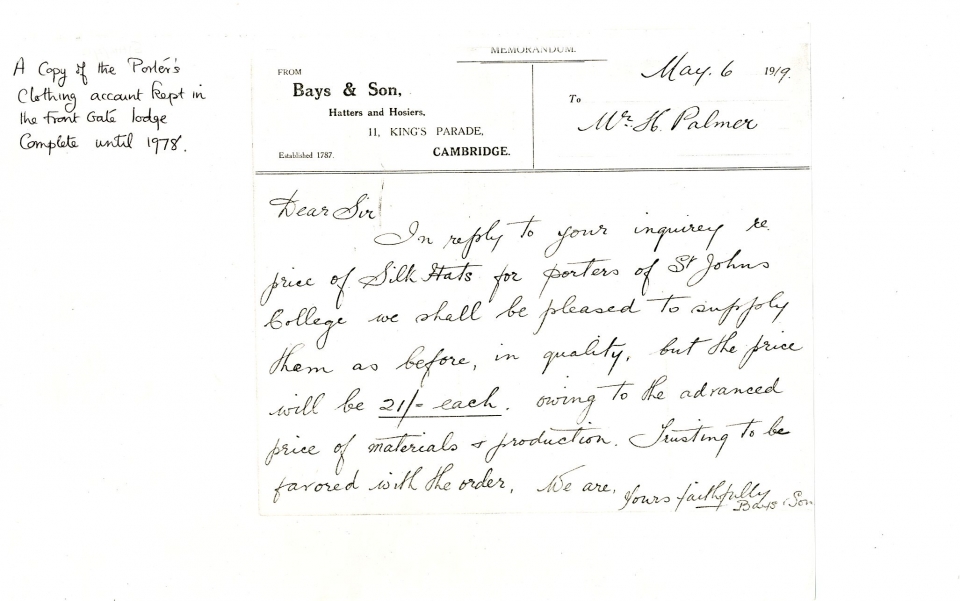 A Copy of the Porter's
Clothing account kept in
the Front Gate lodge
Complete until 1978.
MEMORANDUM.
FROM
Bays & Son,
Hatters and Hosiers,
11, KING'S PARADE,
Established 1787.
CAMBRIDGE.
May. 6 1919.
To
Mr. H. Palmer
Dear Sir
In reply to your inquirey re
price of Silk Hats for porters of St Johns
College we shall be pleased to supply
them as before, in quality, but the price
will be 21/- each. owing to the advanced
price of materials & production. Trusting to be
favored with the order, We are, Yours faithfully
Bays & Son